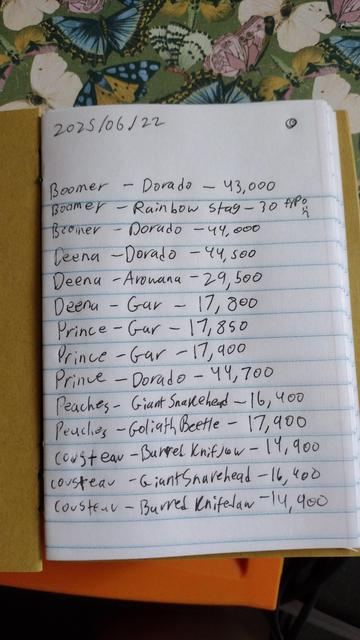 2025/06/22
Boomer - Dorado - 43,000
Boomer - Rainbow stag - 30 typo
Boomer - Dorado - 44,000
Deena - Dorado - 44,500
Deena - Arowana - 29,500
Deena - Gar - 17,800
Prince - Gar - 17,850
Prince - Gar - 17,900
Prince - Dorado - 44,700
Peaches - Giant Snakehead - 16,400
Peaches - Goliath Beetle - 17,900
Cousteau - Barrel Knifjaw - 14,900
Cousteau - Giant Snakehead - 16,400
Cousteau - Barred Knifejaw - 14,900